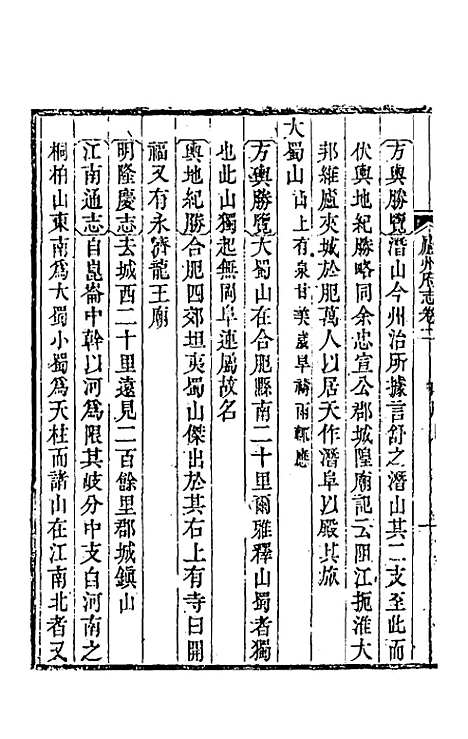 廬州府志卷二
方輿勝覽潛山今州治所據言舒之潛山其一支至此而
伏輿地紀勝略同余忠宣公郡城隍廟記云阻江扼淮大
邦維廬夾城於肥萬人以居天作潛阜以殿其旅
大蜀山山上有泉甘美歲旱禱雨輒應
方輿勝覽大蜀山在合肥縣南二十里爾雅釋山蜀者獨
也此山獨起無岡阜連屬故名
輿地紀勝合肥四郊坦夷蜀山傑出於其右上有寺曰開
福又有永濟龍王廟
明隆慶志去城西二十里遠見二百餘里郡城鎮山
江南通志自崑崙中幹以河為限其岐分中支自河南之
桐柏山東南為大蜀小蜀為天柱而諸山在江南北者又